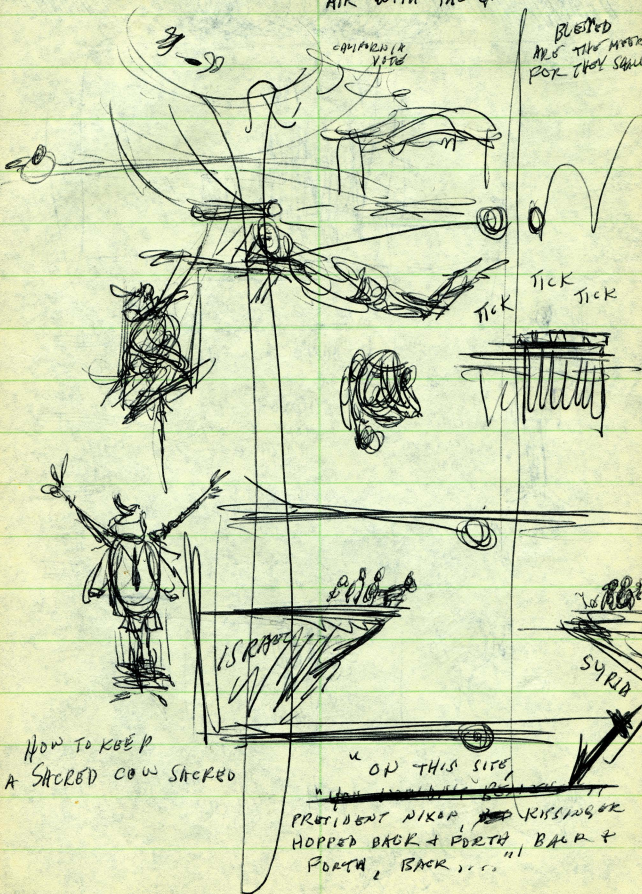 AIR WITH THE
CALIFORNIA
VOTE
BLESSED
ARE THE MEEK
FOR THEY SHALL
TICK
TICK
TICK
ISRAEL
SYRIA
HOW TO KEEP
A SACRED COW SACRED
"ON THIS SITE,
PRESIDENT NIXON, KISSINGER
HOPPED BACK & FORTH, BACK &
FORTH, BACK ...."